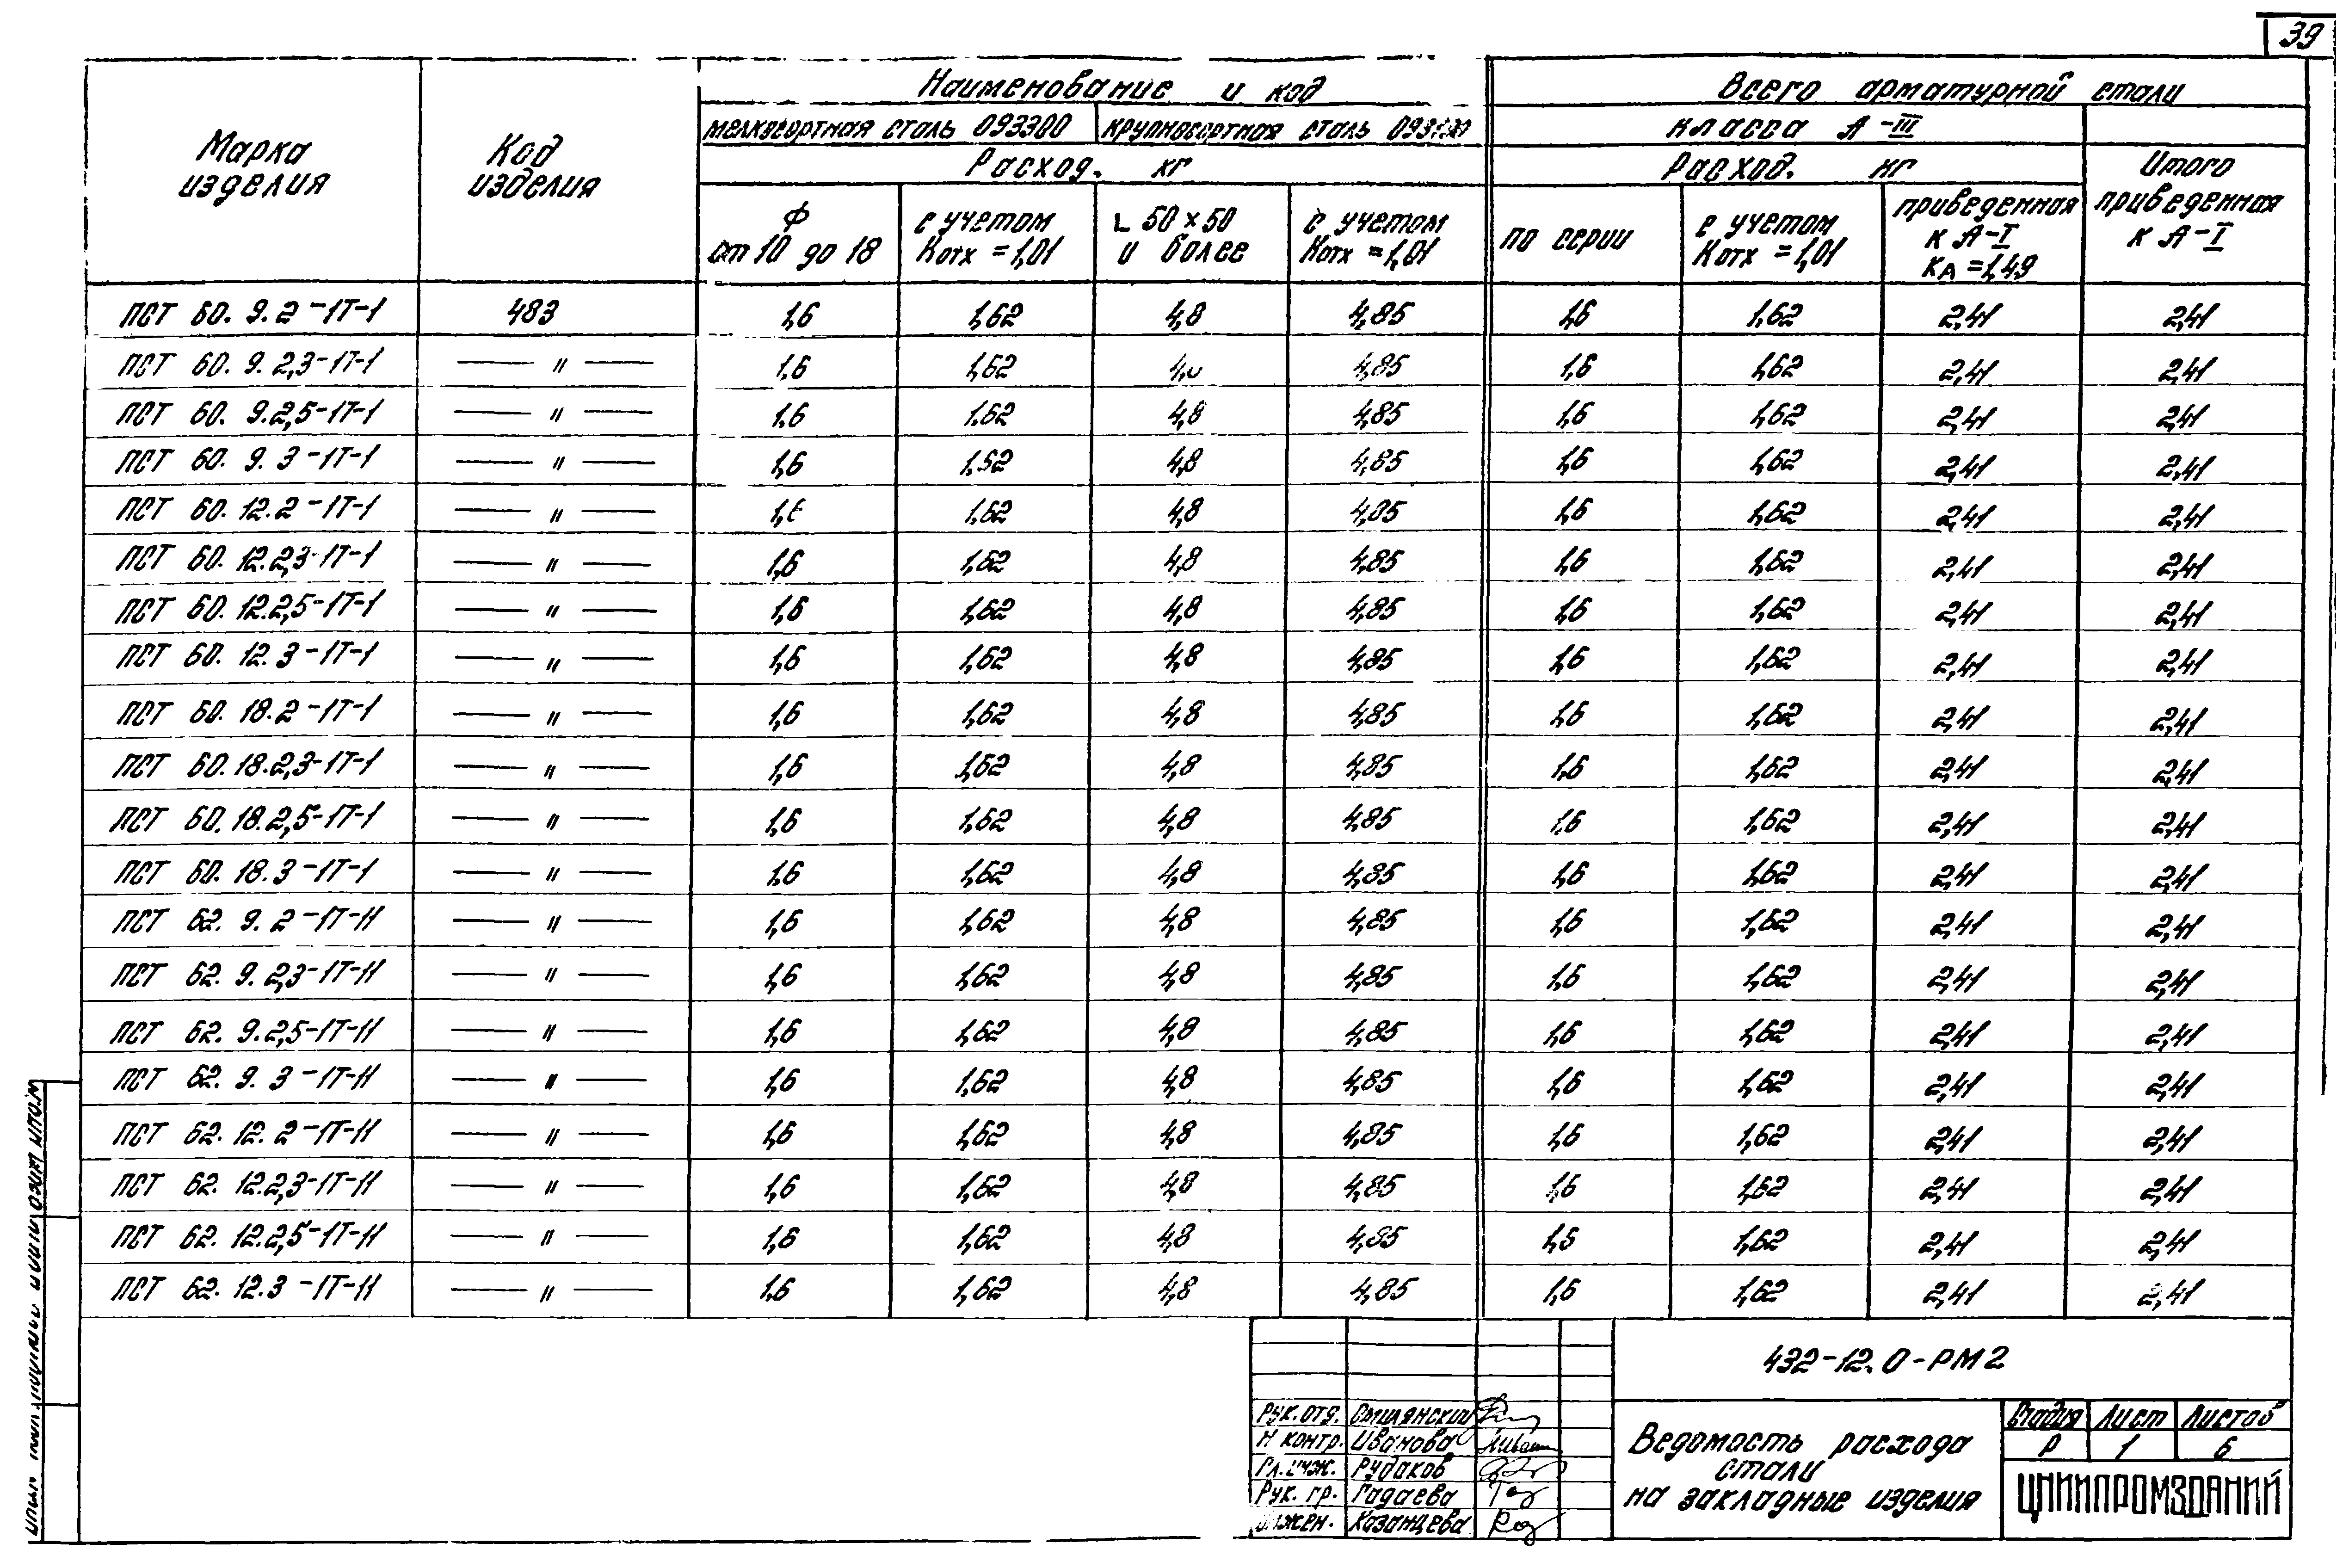 39
Марка изделия
Код изделия
Наименование и код
мелкосортная сталь 093300
крупносортная сталь
Расход. кг
Ф от 10 до 18
с учетом Котх = 1,01
L 50 × 50 и более
с учетом Котх = 1,01
Всего арматурной стали
класса А-III
Расход. кг
по серии
с учетом Котх = 1,01
приведенная к А-I КА = 1,49
Итого приведенная к А-I
ПСТ 60. 9. 2 -1Т-1 483 1,6 1,62 4,8 4,85 1,6 1,62 2,41 2,41
ПСТ 60. 9. 2,3-1Т-1 — " — 1,6 1,62 4,85 1,6 1,62 2,41 2,41
ПСТ 60. 9.2,5-1Т-1 — " — 1,6 1.62 4,8 4,85 1,6 1,62 2,41 2,41
ПСТ 60. 9. 3 -1Т-1 — " — 1,6 1,62 4,8 4,85 1,6 1,62 2,41 2,41
ПСТ 60. 12. 2 -1Т-1 — " — 1,6 1.62 4,8 4,85 1,6 1,62 2,41 2,41
ПСТ 60. 12.2,3-1Т-1 — " — 1,6 1,62 4,8 4,85 1,6 1,62 2,41 2,41
ПСТ 60. 12.2,5-1Т-1 — " — 1,6 1,62 4,8 4,85 1,6 1,62 2,41 2,41
ПСТ 60. 12. 3 -1Т-1 — " — 1,6 1,62 4,8 4,85 1,6 1,62 2,41 2,41
ПСТ 60. 18. 2 -1Т-1 — " — 1,6 1,62 4,8 4,85 1,6 1,62 2,41 2,41
ПСТ 60. 18.2,3-1Т-1 — " — 1,6 1,62 4,8 4,85 1,6 1,62 2,41 2,41
ПСТ 60. 18.2,5-1Т-1 — " — 1,6 1,62 4,8 4,85 1,6 1,62 2,41 2,41
ПСТ 60. 18. 3 -1Т-1 — " — 1,6 1,62 4,8 4,85 1,6 1,62 2,41 2,41
ПСТ 62. 9. 2 -1Т-11 — " — 1,6 1,62 4,8 4,85 1,6 1,62 2,41 2,41
ПСТ 62. 9. 2,3-1Т-11 — " — 1,6 1,62 4,8 4,85 1,6 1,62 2,41 2,41
ПСТ 62. 9.2,5-1Т-11 — " — 1,6 1,62 4,8 4,85 1,6 1,62 2,41 2,41
ПСТ 62. 9. 3 -1Т-11 — " — 1,6 1,62 4,8 4,85 1,6 1,62 2,41 2,41
ПСТ 62. 12. 2 -1Т-11 — " — 1,6 1,62 4,8 4,85 1,6 1,62 2,41 2,41
ПСТ 62. 12.2,3-1Т-11 — " — 1,6 1,62 4,8 4,85 1,6 1,62 2,41 2,41
ПСТ 62. 12.2,5-1Т-11 — " — 1,6 1,62 4,8 4,85 1,6 1,62 2,41 2,41
ПСТ 62. 12.3 -1Т-11 — " — 1,6 1,62 4,8 4,85 1,6 1,62 2,41 2,41
432-12.0-РМ2
Рук. отд. Смилянский
Н контр. Иванова
Гл. инж. Рудаков
Рук. гр. Гадаева
Инжен. Казанцева
Ведомость расхода
стали
на закладные изделия
Стадия Лист Листов
Р 1 6
ЦНИИПРОМЗДАНИЙ